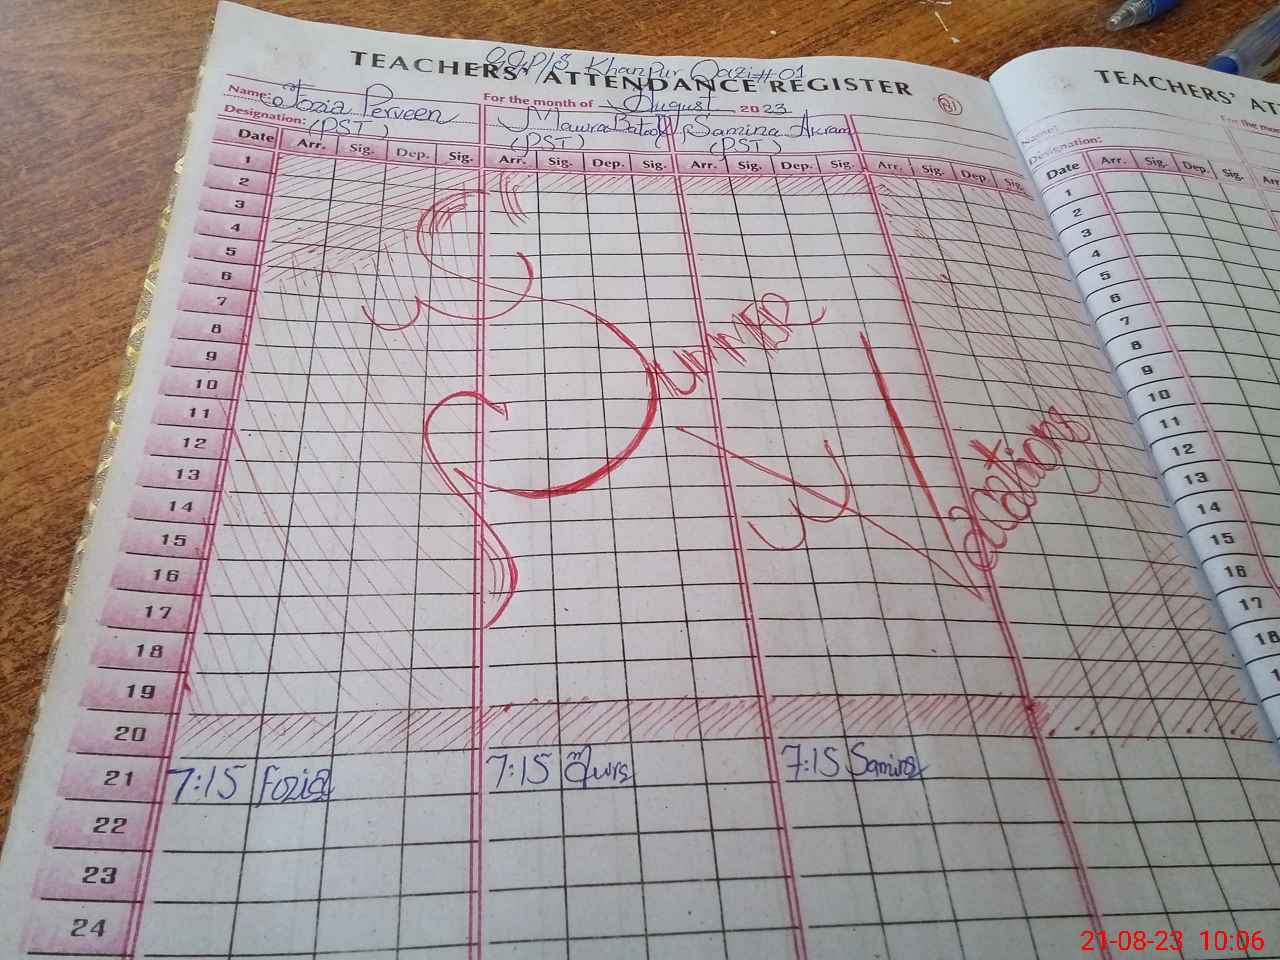 G.G.P/S Khanpur Qazi # 01
TEACHERS' ATTENDANCE REGISTER
Name: Fozia Perveen
For the month of August 2023
Designation: (PST)
Mawra Batool (PST)
Samina Akram (PST)
Date Arr. Sig. Dep. Sig. Arr. Sig. Dep. Sig. Arr. Sig. Dep. Sig. Arr. Sig. Dep. Sig.
1
2
3
4
5
6
7
8
9
10
11
12
13
14
15
16
17
18
19
20
21 7:15 Fozia 7:15 Mawra 7:15 Samina
22
23
24
SUMMER
Vacations
TEACHERS' AT
Name:
For the mon
Designation:
Date Arr. Sig. Dep. Sig. Arr
1
2
3
4
5
6
7
8
9
10
11
12
13
14
15
16
17
18
21-08-23 10:06